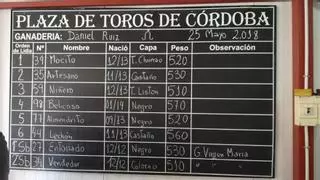 PLAZA DE TOROS DE CÓRDOBA
GANADERIA: Daniel Ruiz 25 Mayo 2.018
Orden de Lidia Nº Nombre Nació Capa Peso Observación
1 39 Mocito 12/13 T. Chorreao 520
2 35 Artesano 11/13 Castaño 530
3 59 Niñero 12/13 T. Liston 510
4 98 Belicoso 01/14 Negro 570
5 77 Almendrito 09/13 Negro 520
6 44 Lechón 11/13 Castaño 560
1ºSb 27 Enfollado 12/12 Negro 530 G. Virgen Maria
2ºSb 34 Vendedor 12/12 Colorao 510 "